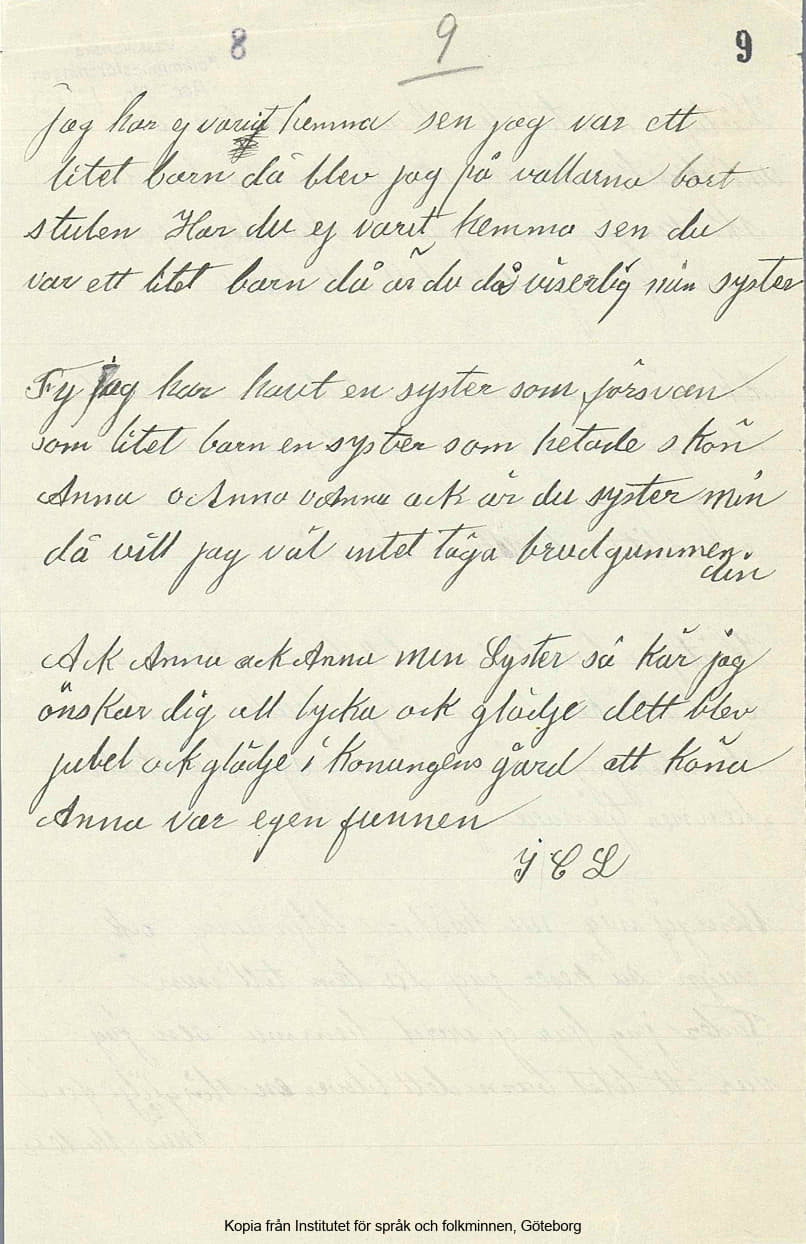 8 9 9
jag har ej varit hemma sen jag var ett
litet barn då blev jag på vallarna bort
stulen Har du ej varit hemma sen du
var ett litet barn då är du då viserlig min syster
Ty jag har haut en syster som försvan
som litet barn en syster som hetade skön
Anna o Anna o Anna ack är du syster min
då vill jag väl intet taga brudgummen
din
Ack Anna ack Anna min Syster så kär jag
önskar dig all lycka ock glädje dett blev
jubel ock glädje i konungens gård att
Anna var egen funnen
J C L
Kopia från Institutet för språk och folkminnen, Göteborg